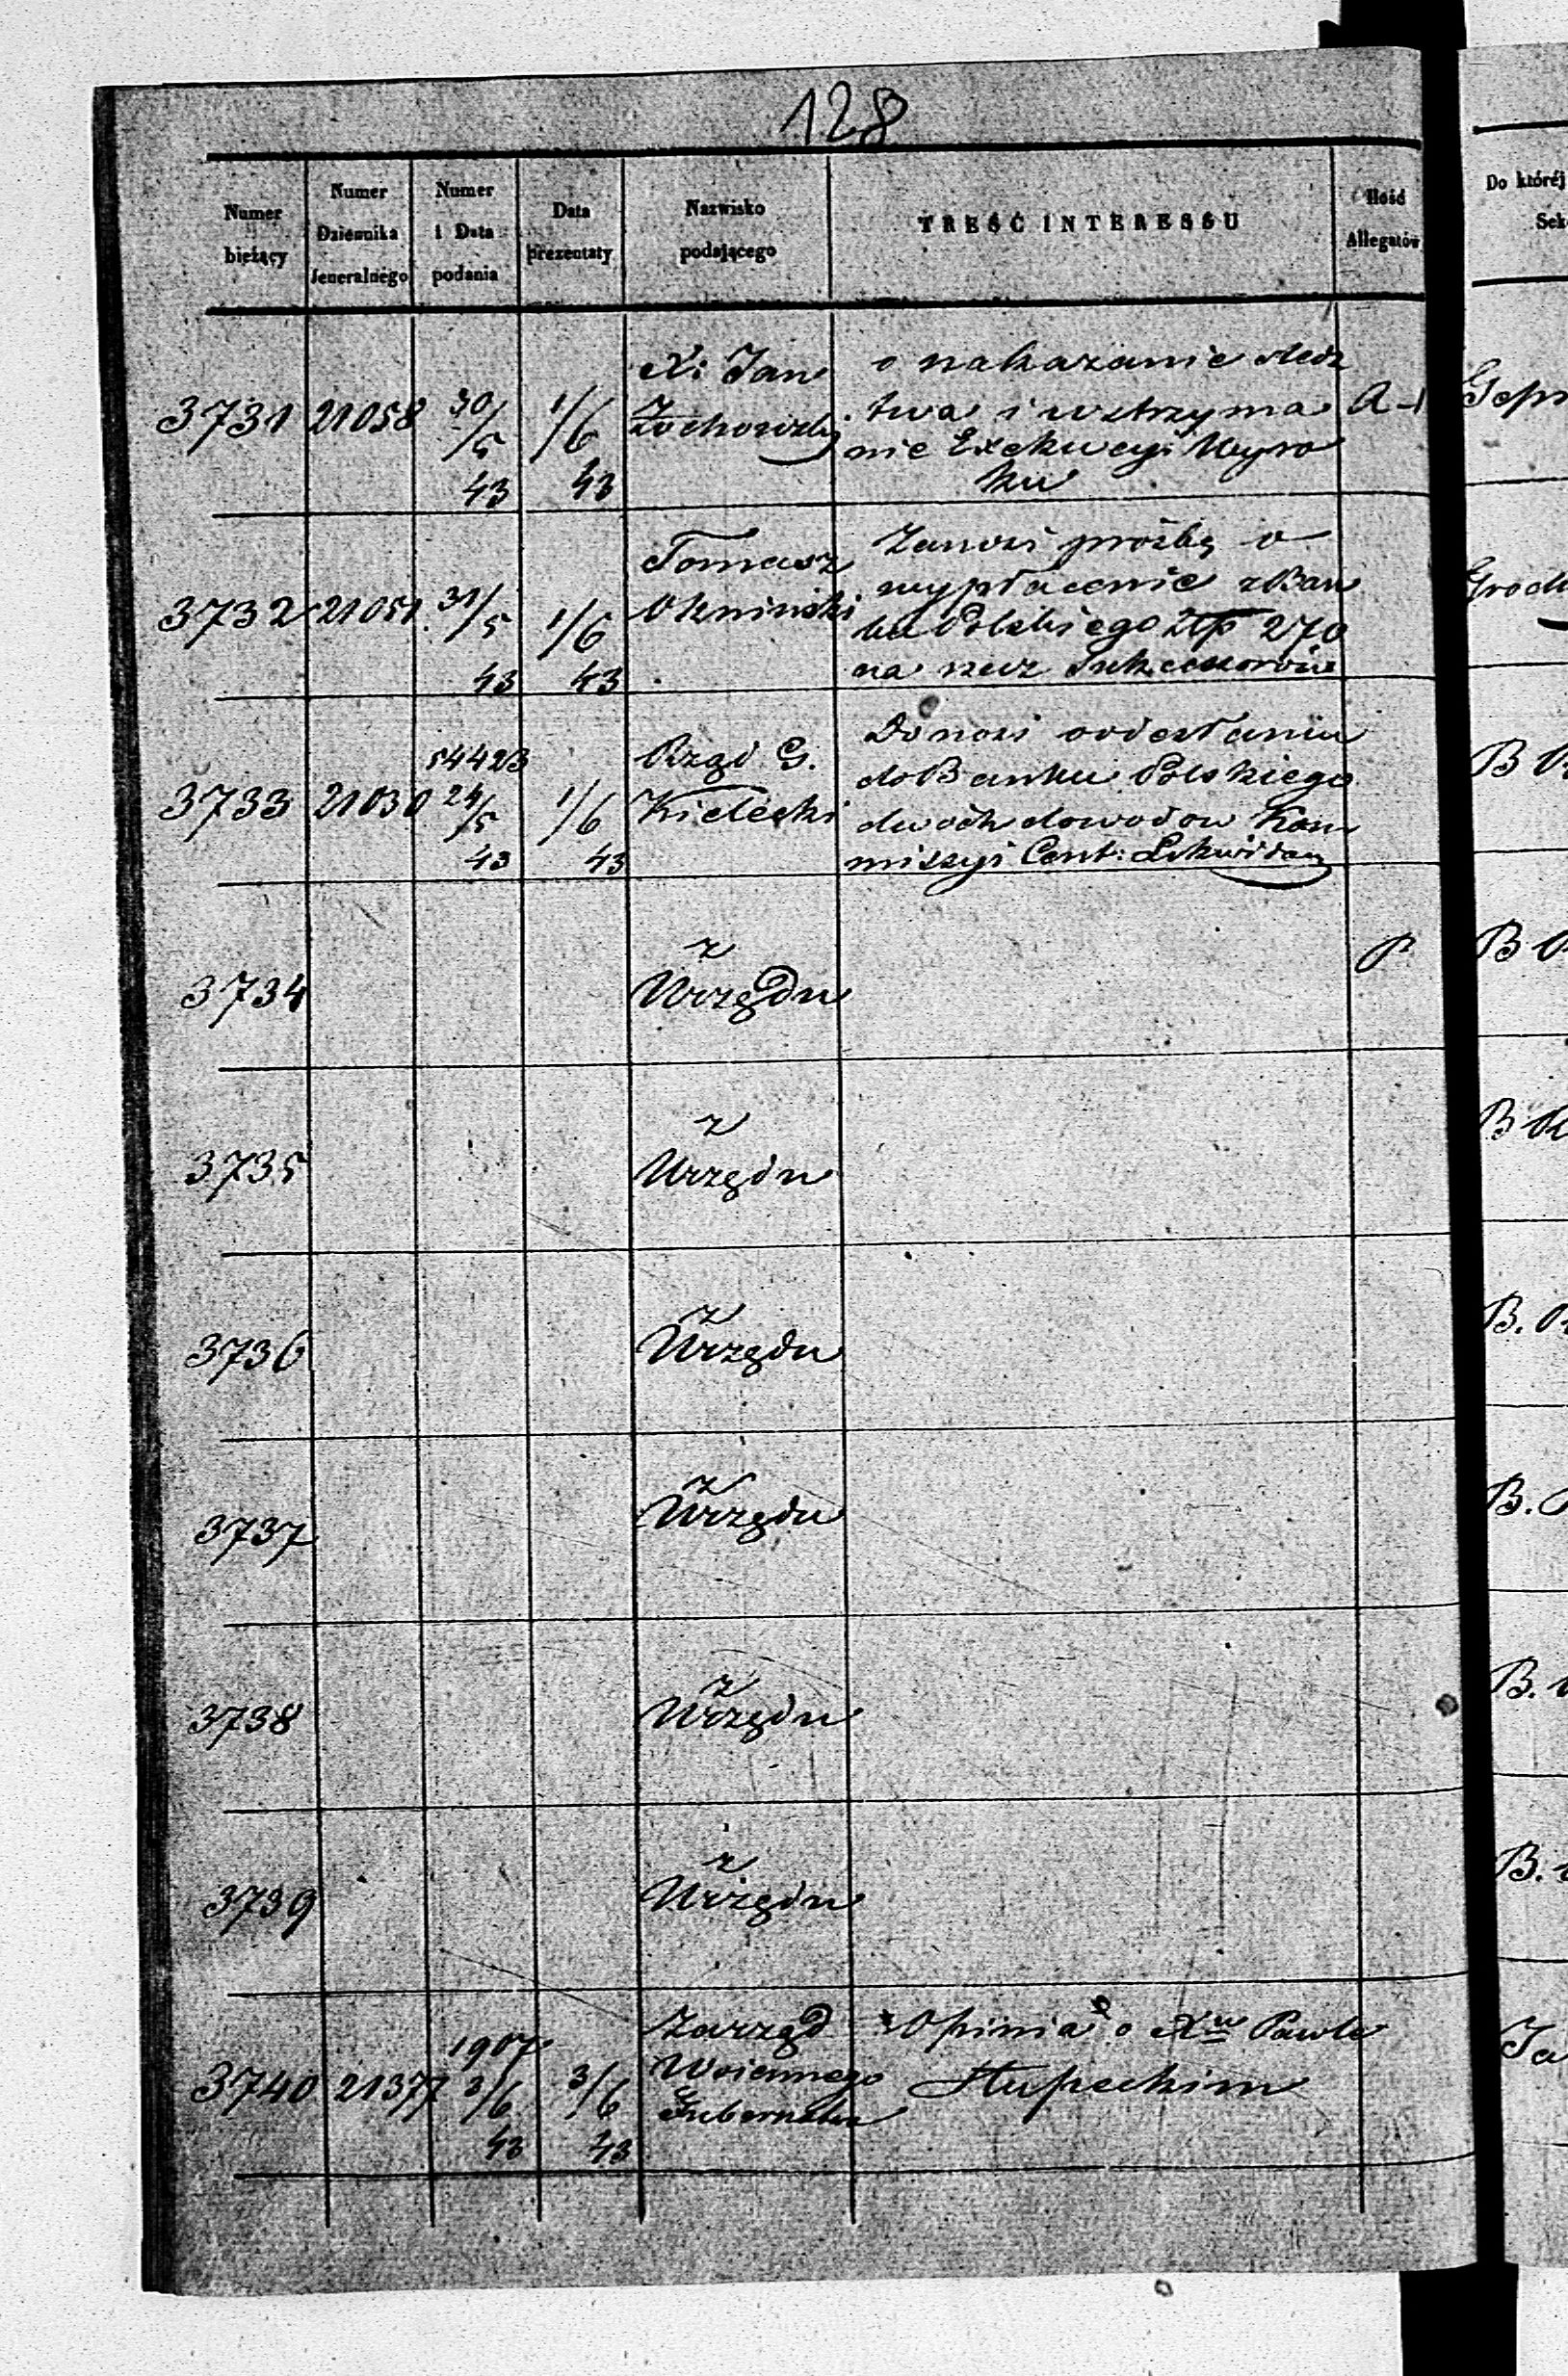 128
Numer bieżący | Numer Dziennika Jeneralnego | Numer i Data podania | Data prezentaty | Nazwisko podającego | TREŚĆ INTERESSU | Ilość Allegatów | Do któréj Sek
3731 | 21058 | 30/5 43 | 1/6 43 | X: Jan Żochowski | o nakazanie śledz | A-1
twa i wstrzyma
nie Exekucyi Wyro
ku
3732 | 21051 | 31/5 43 | 1/6 43 | Tomasz Okniński | Zanosi prośbę o
wypłacenie z Ban
ku Polskiego Złp 270
na rzecz Sukcessorów
3733 | 21030 | 54423 24/5 43 | 1/6 43 | Rząd G. Kielecki | Donosi o odesłaniu
do Banku Polskiego
dwóch dowodow Kom
missyi Cent: Likwidac | B
3734 | z Urzędu | P | B
3735 | z Urzędu | B
3736 | z Urzędu | B.
3737 | z Urzędu | B.
3738 | z Urzędu | B.
3739 | z Urzędu | B.
3740 | 21377 | 1907 3/6 43 | 3/6 43 | Zarząd Woiennego Gubernatora | Opinia o Xu Pawle
Słupeckim